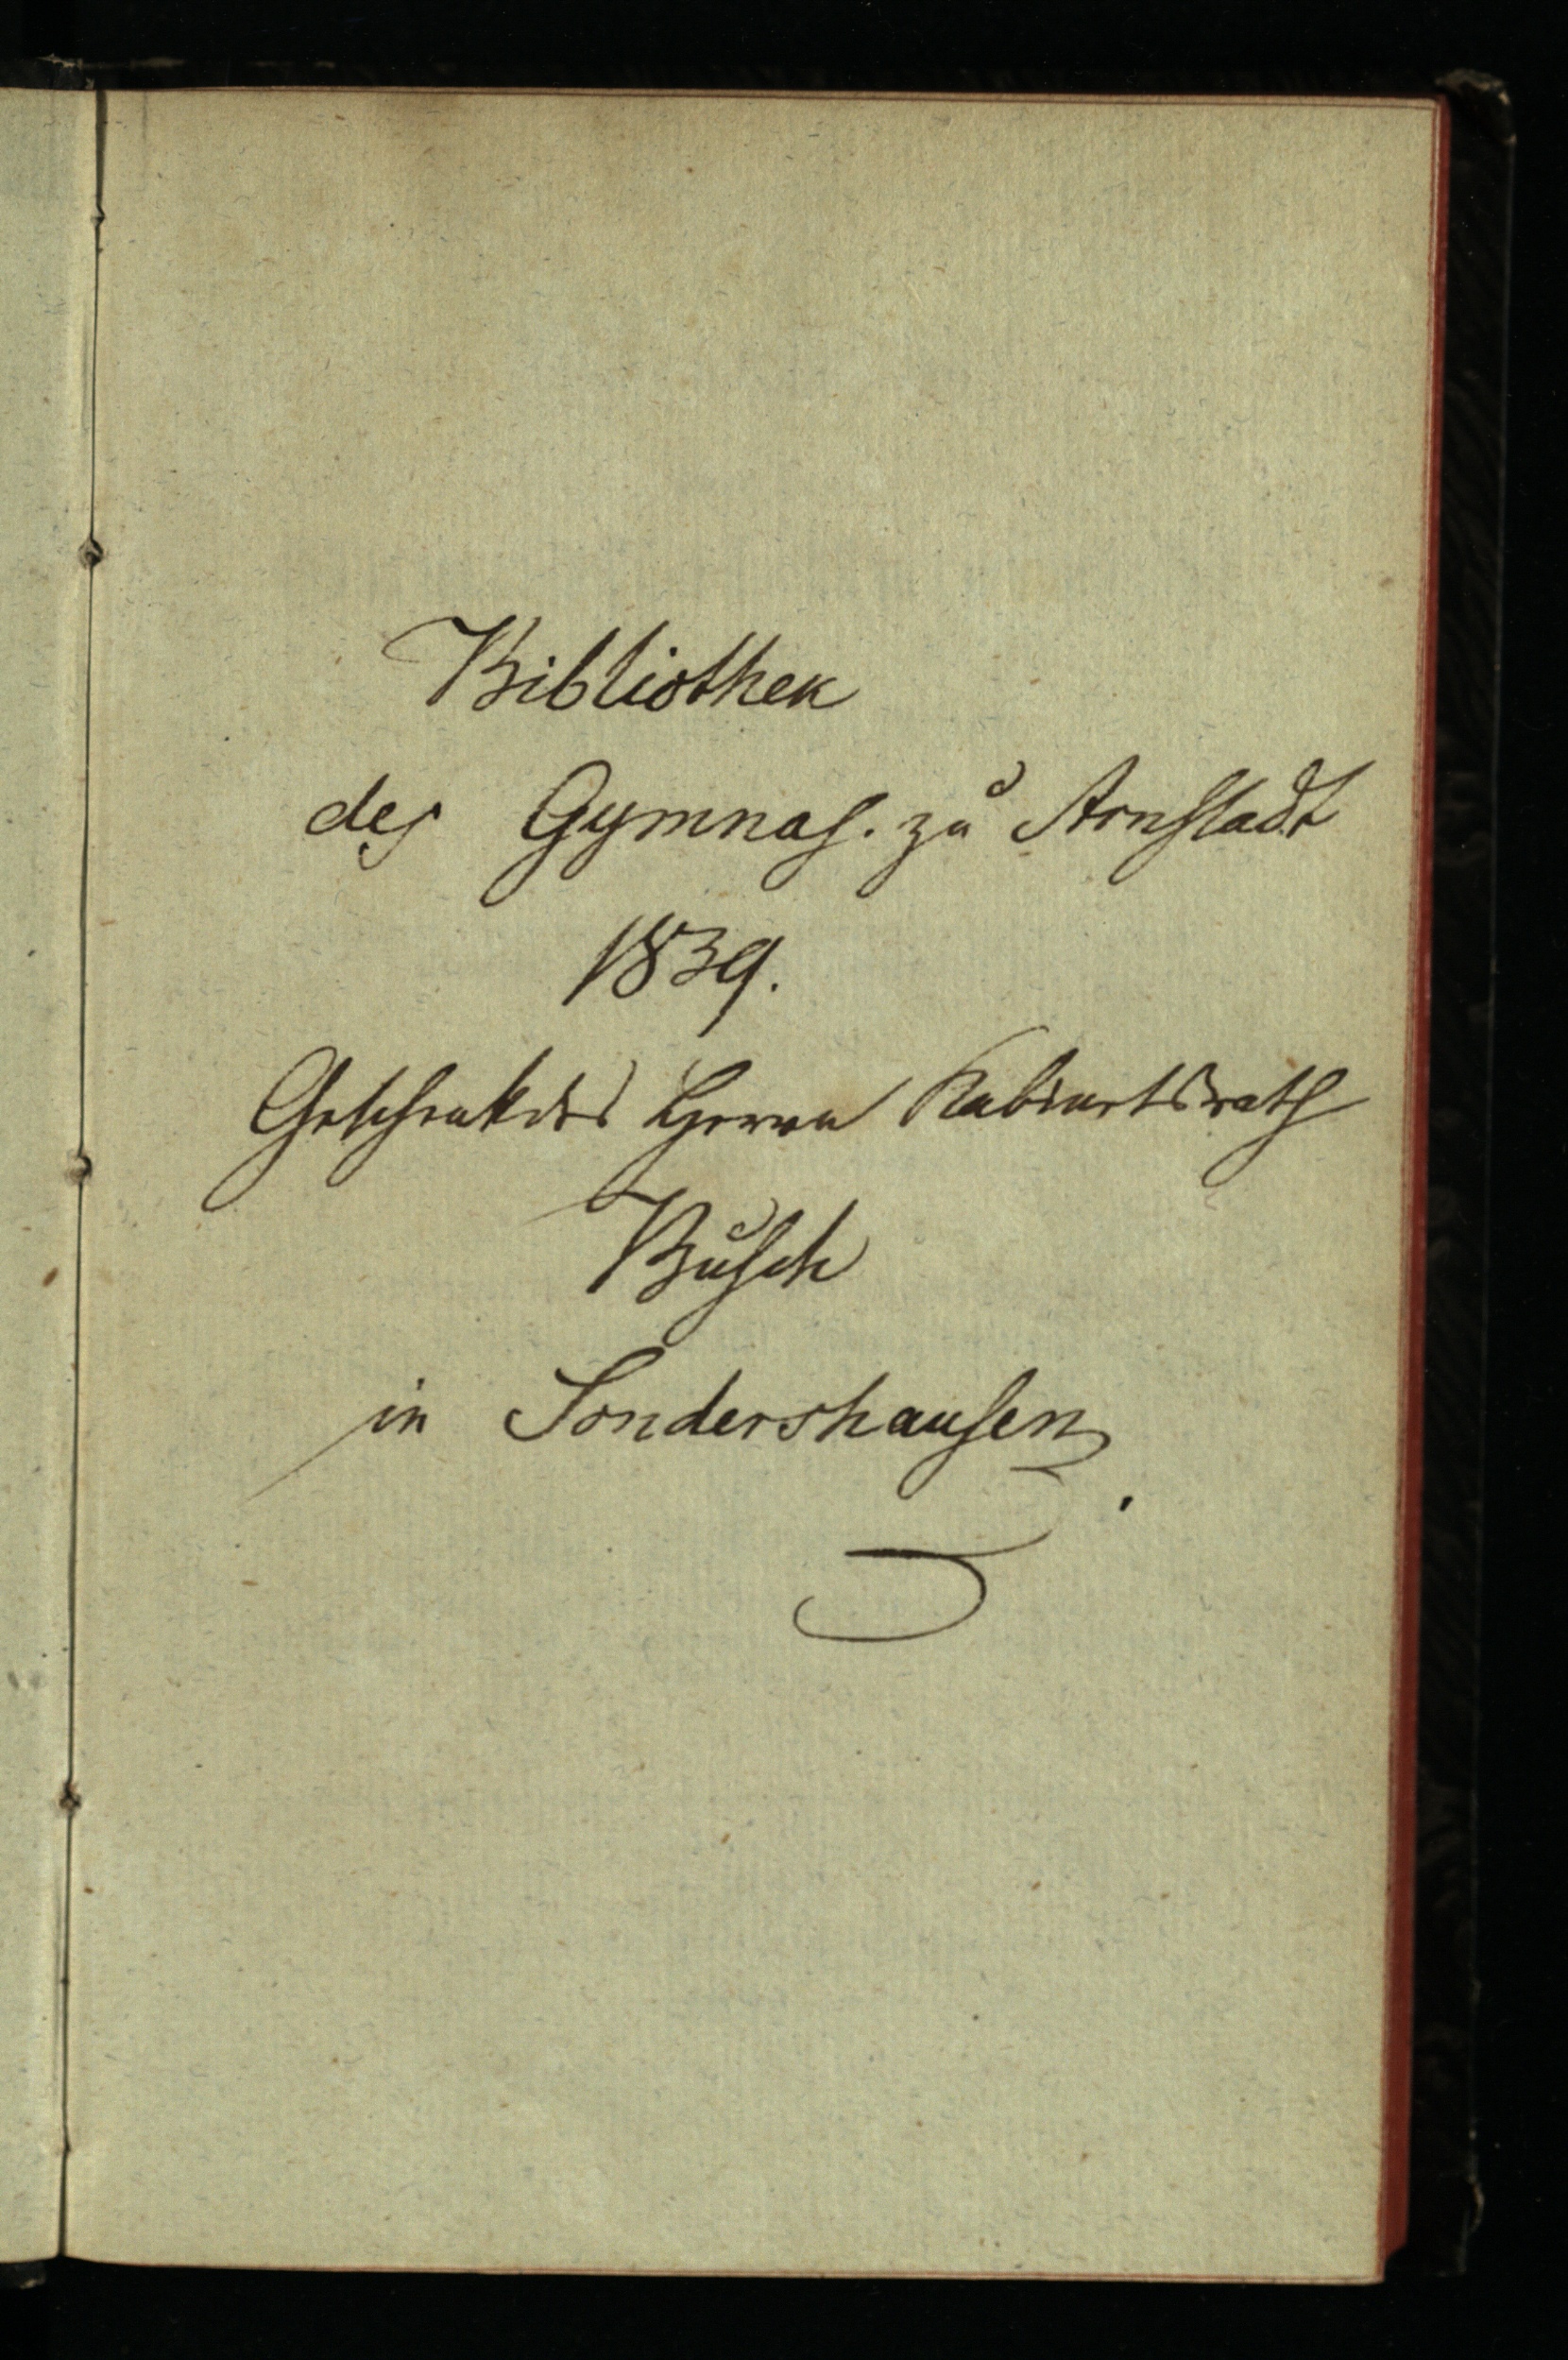 Bibliothek
des Gymnas. zu Arnstadt
1839.
Geschenk des Herrn Kabinetsrath
Busch
in Sondershausen.